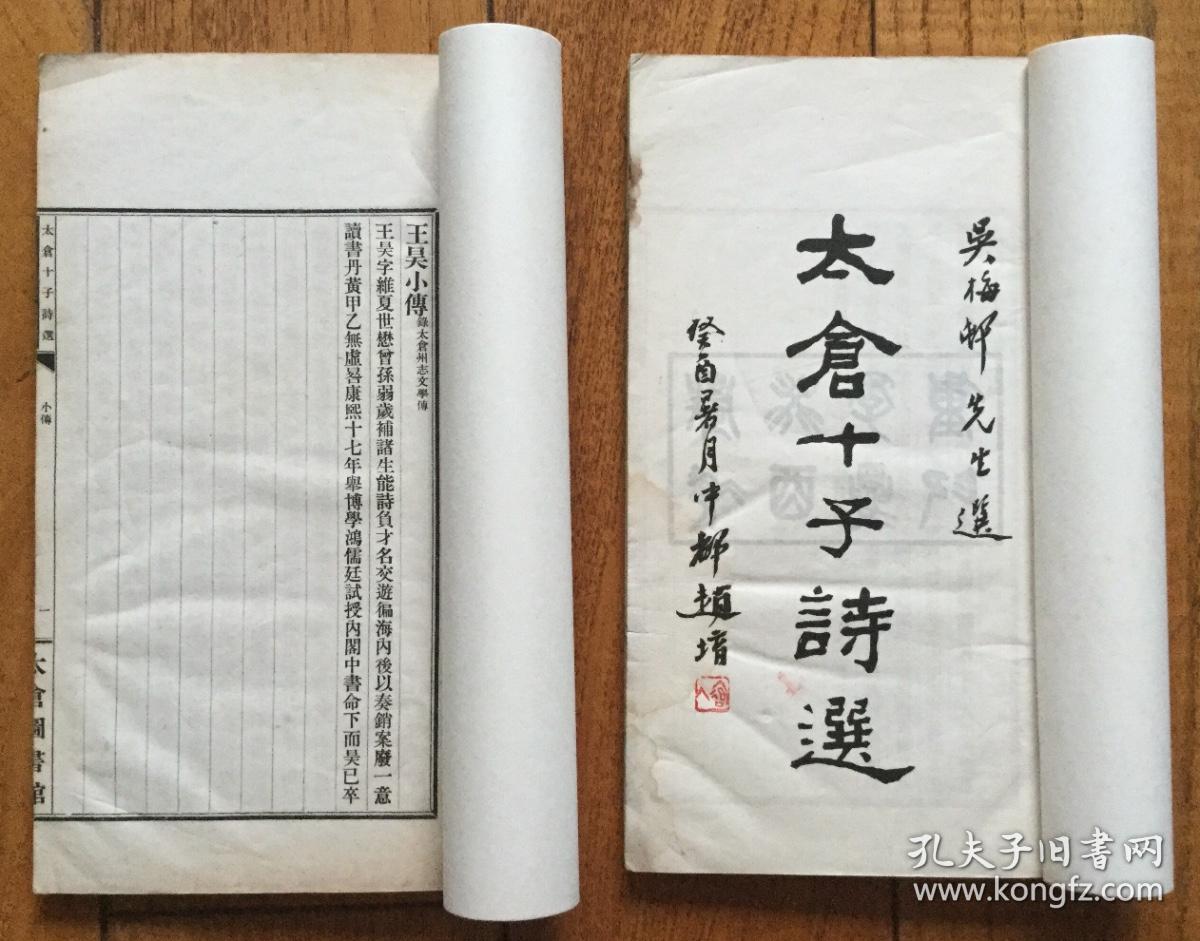 王昊小傳 錄太倉州志文學傳
王昊字維夏世懋曾孫弱歲補諸生能詩負才名交遊徧海內後以奏銷案廢一意
讀書丹黃甲乙無虛晷康熙十七年舉博學鴻儒廷試授內閣中書命下而昊已卒
太倉十子詩選
小傳
一
太倉圖書館
吳梅邨先生選
太倉十子詩選
癸酉暑月中都趙堉
孔夫子旧书网
www.kongfz.com